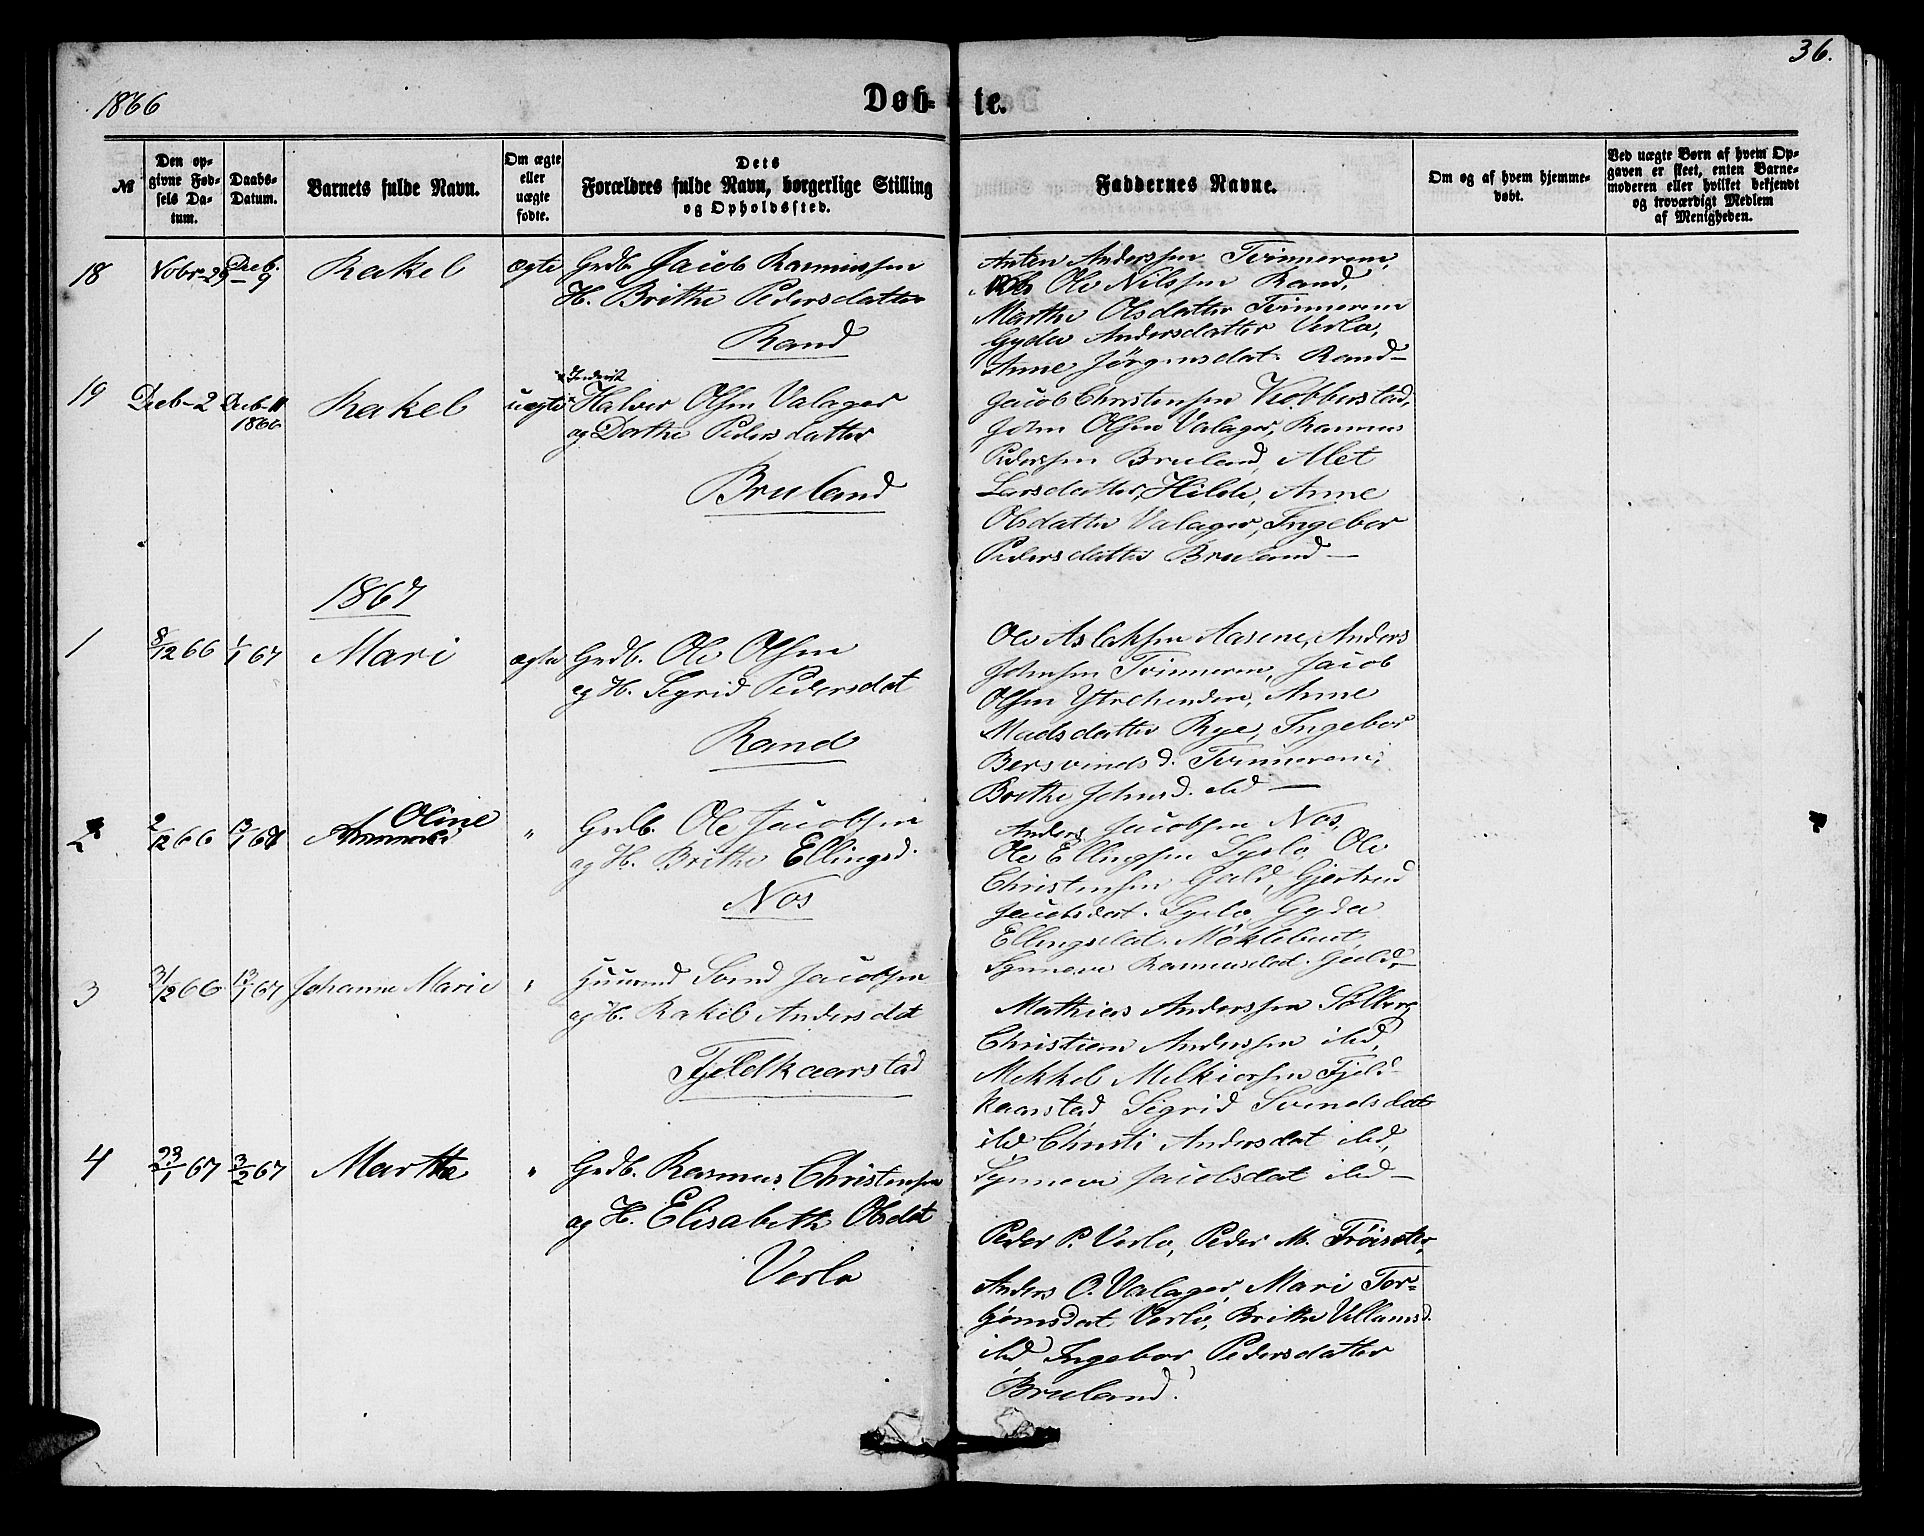 36.
1866
Døb- te.
№
Den op-
givne Fød-
sels Da-
tum.
Daabs-
Datum.
Barnets fulde Navn.
Om ægte
eller
uægte
fødte.
Dets
Forældres fulde Navn, borgerlige Stilling
og Opholdssted.
Faddernes Navne.
Om og af hvem hjemme-
døbt.
Ved uægte Børn af hvem Op-
gaven er skeet, enten Barne-
moderen eller hvilket bekjendt
og troværdigt Medlem
af Menigheden.
18
Nobr-29
Decb.
9
Rakel
ægte
Grdb. Jacob Rasmussen
H. Brithe Pedersdatter
Rand
Anten Anderssen Tvinnerem,
Ole Nilssen Rand,
Marthe Olsdatter Tvinnerem
Gyda Andersdatter Verlo,
Anne Jörgensdat. Rand-
19
Decb-2
Decb-11
1866
Rakel
uægte
Halvor Olsen Valager
og Dorthe Pedersdatter
Bruland
Jacob Christensen Kobberstad,
John Olsen Valager, Rasmus
Pederssen Bruland, Alet
Larsdatter, Hilde, Anne
Olsdatter Valager, Ingebor
Pedersdatter Bruland-
1867
1
8/12 66
1/1 67
Mari
ægte
Grdb. Ole Olsen
og H. Segrid Pedersdat
Rand
Ole Aslaksen Aasene, Anders
Johnsen Tvinnerem, Jacob
Olsen Ytrehenden, Anne
Madsdatter Rye, Ingebor
Bersvinds d. Tvinnerem,
Brithe Johnsd. ibd-
2
2/12 66
13/1 67
Oline
"
Grdb. Ole Jacobsen
og H. Brithe Ellingsd.
Nos
Anders Jacobsen Nos,
Ole Ellingsen Sørlo, Ole
Christensen Gald, Gjertrud
Jacobsdat. Gyda
Ellingsdat. Möklebust,
Synneve Rasmusdat. Gald,-
3
31/12 66
13/1 67
Johanne Marie
"
Huusmd Svend Jacobsen
og H. Rakel Andersdat
Fjeldkaarstad
Mathias Anderssen Solberg
Christian Anderssen ibd,
Mekkel Melkiorsen Fjeld-
kaarstad Segrid Svendsdat
ibd Christi Andersdat ibd,
Synneve Jacobsdat ibd-
4
23/1 67
3/2 67
Marthe
"
Grdb. Rasmus Christensen
og H. Elisabeth Olsdat
Verlo
Peder P. Verlo, Peder M. Tröister,
Anders O. Valager, Mari Tor-
gjömsdat Verlo, Brithe Villumsd.
ibd, Ingebor Pedersdatter
Bruland.